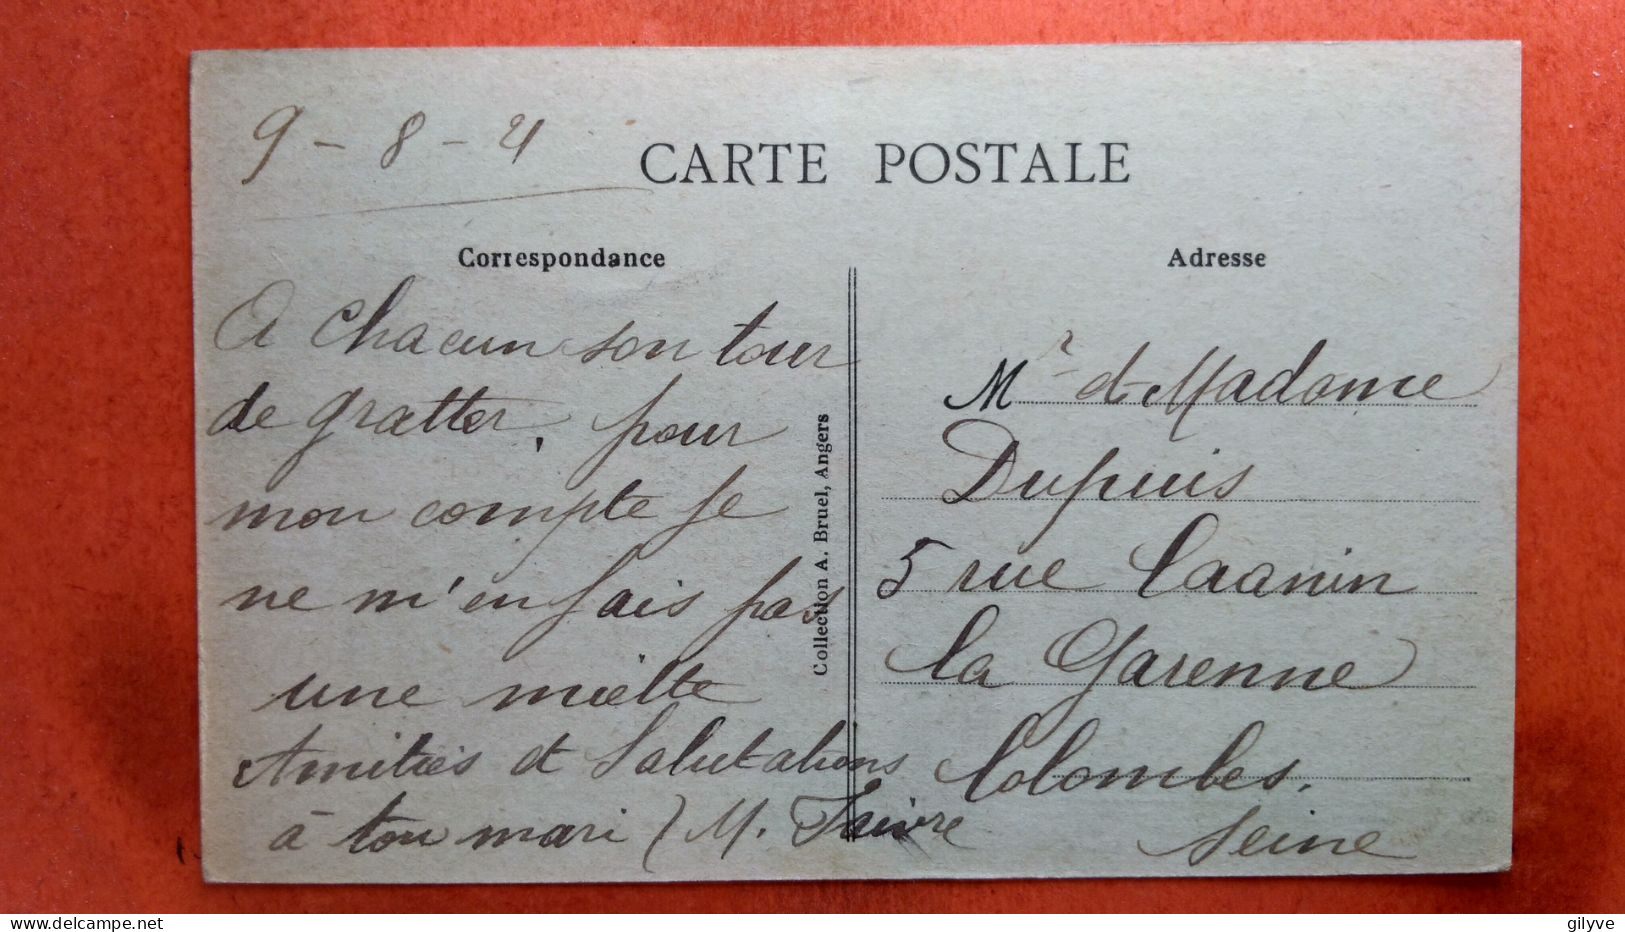 9 - 8 - 21
CARTE POSTALE
Correspondance
A chacun son tour
de gratter, pour
mon compte je
ne m'en fais pas
une miette
Amitiés et Salutations
à ton mari M. Faivre
Collection A. Bruel, Angers
Adresse
Mr et Madame
Dupuis
5 rue
la Garenne
Colombes.
Seine
gilyve